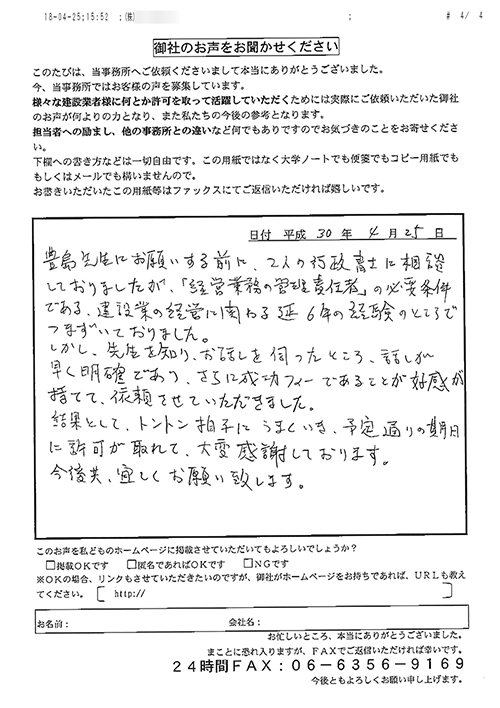 18-04-25;15:52 ;(株) ; # 4/ 4
御社のお声をお聞かせください
このたびは、当事務所へご依頼くださいまして本当にありがとうございました。
今、当事務所ではお客様の声を募集しています。
様々な建設業者様に何とか許可を取って活躍していただくためには実際にご依頼いただいた御社
のお声が何よりの力となり、また私たちの今後の参考となります。
担当者への励まし、他の事務所との違いなど何でもありですのでお気づきのことをお寄せくださ
い。
下欄への書き方などは一切自由です。この用紙ではなく大学ノートでも便箋でもコピー用紙でも
もしくはメールでも構いませんので。
お書きいただいたこの用紙等はファックスにてご返信いただければ嬉しいです。
日付 平成 30 年 4 月 25 日
豊島先生にお願いする前に、2人の行政書士に相談
しておりましたが、「経営業務の管理責任者」の必要条件
である、建設業の経営に関わる延6年の経験のところで
つまずいておりました。
しかし、先生を知り、お話しを伺ったところ、話しが
早く明確であり、さらに成功フィーであることが好感が
持てて、依頼させていただきました。
結果として、トントン拍子にうまくいき、予定通りの期日
に許可が取れて、大変感謝しております。
今後共、宜しくお願い致します。
このお声を私どものホームページに掲載させていただいてもよろしいでしょうか?
□掲載OKです □匿名であればOKです □NGです
※OKの場合、リンクもさせていただきたいのですが、御社がホームページをお持ちであれば、URLも教え
てください。〔 http:// 〕
お名前: 会社名:
お忙しいところ、本当にありがとうございました。
まことに恐れ入りますが、FAXでご返信いただければ幸いです。
24時間FAX:06-6356-9169
今後ともよろしくお願い申し上げます。